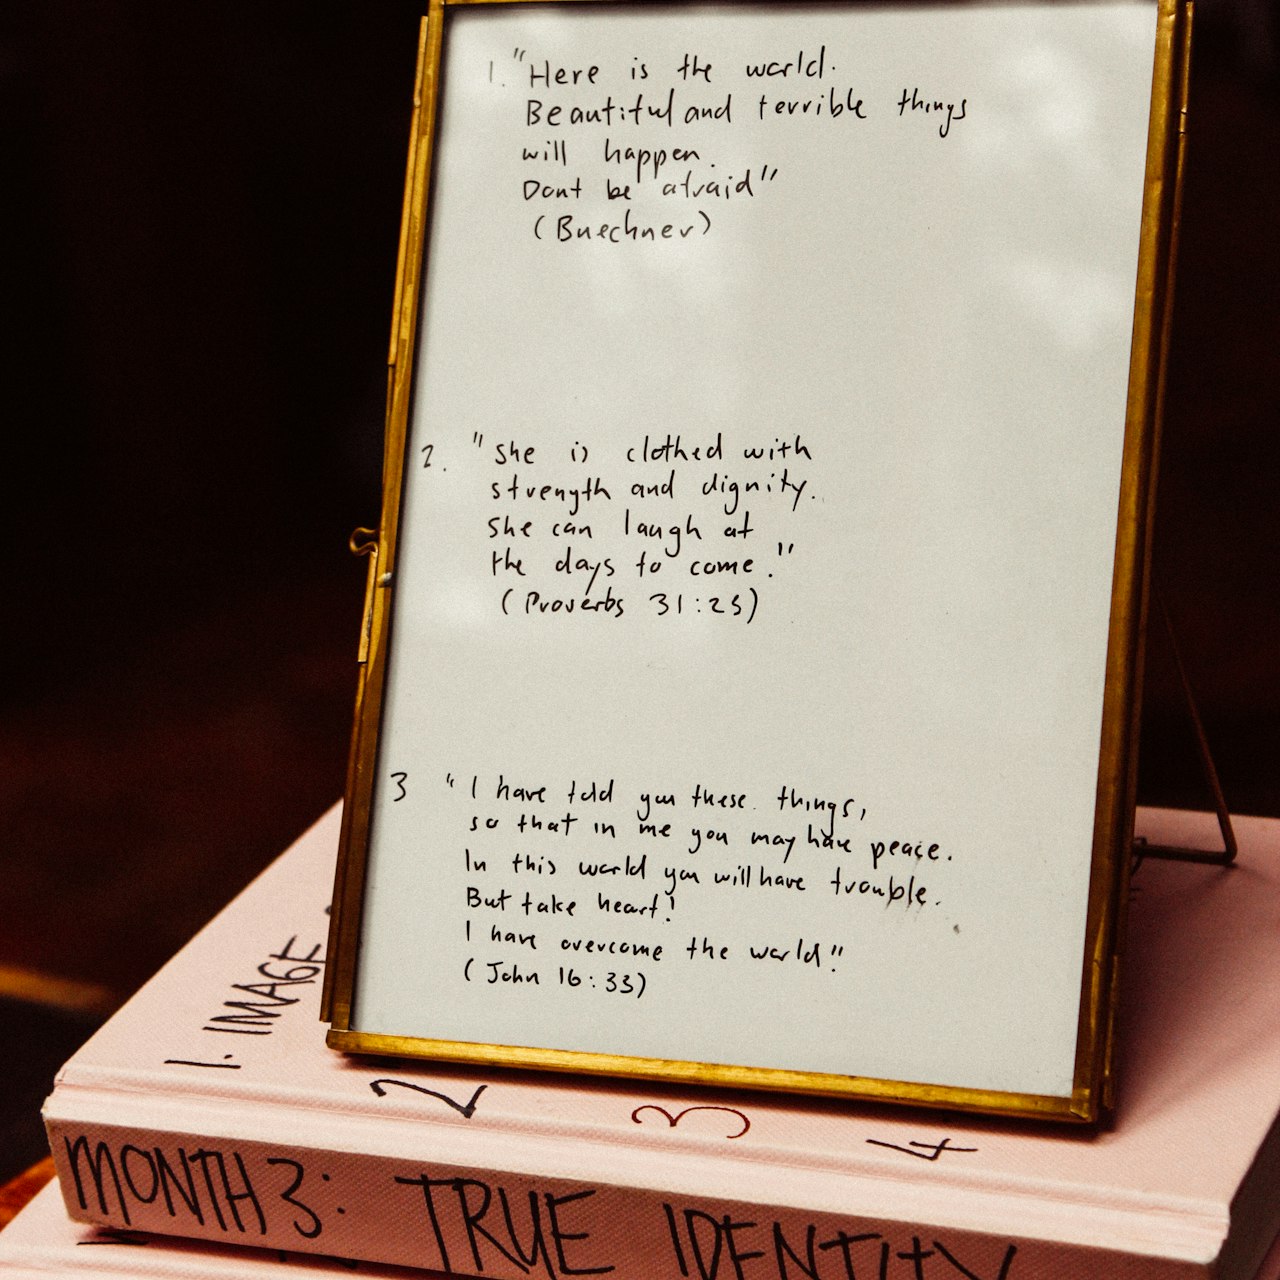 1. "Here is the world.
Beautiful and terrible things
will happen.
Dont be afraid"
(Buechner)
2. "She is clothed with
strength and dignity.
She can laugh at
the days to come."
(Proverbs 31:25)
3 "I have told you these things,
so that in me you may have peace.
In this world you will have trouble.
But take heart!
I have overcome the world"
(John 16:33)
1. IMAGE
2
3
4
MONTH 3: TRUE IDENTITY